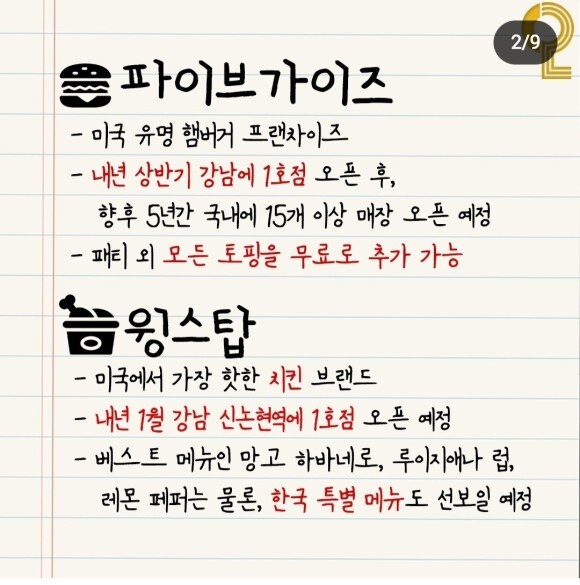 2/9
파이브가이즈
- 미국 유명 햄버거 프랜차이즈
- 내년 상반기 강남에 1호점 오픈 후,
향후 5년간 국내에 15개 이상 매장 오픈 예정
- 패티 외 모든 토핑을 무료로 추가 가능
윙스탑
- 미국에서 가장 핫한 치킨 브랜드
- 내년 1월 강남 신논현역에 1호점 오픈 예정
- 베스트 메뉴인 망고 하바네로, 루이지애나 럽,
레몬 페퍼는 물론, 한국 특별 메뉴도 선보일 예정